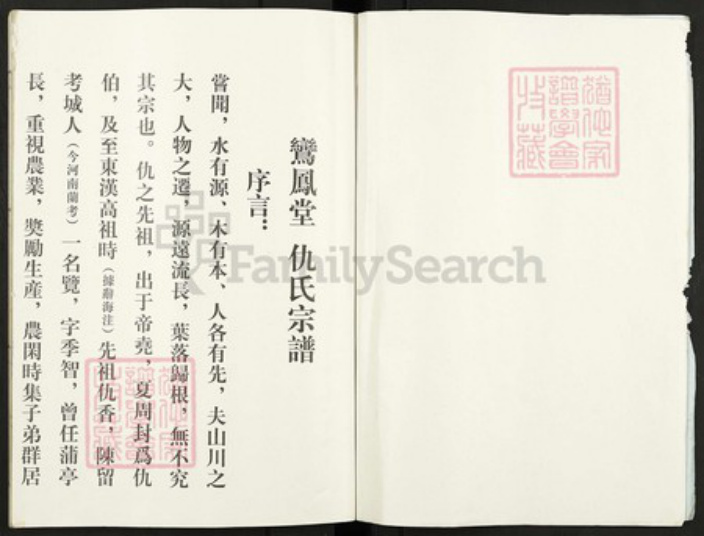 鸞鳳堂 仇氏宗譜
序言：
嘗聞，水有源、木有本、人各有先，夫山川之
大，人物之遷，源遠流長，葉落歸根，無不究
其宗也。仇之先祖，出于帝堯，夏周封爲仇
伯，及至東漢高祖時（據辭海注）先祖仇香，陳留
考城人（今河南蘭考）一名覽，字季智，曾任蒲亭
長，重視農業，獎勵生產，農閑時集子弟群居
FamilySearch